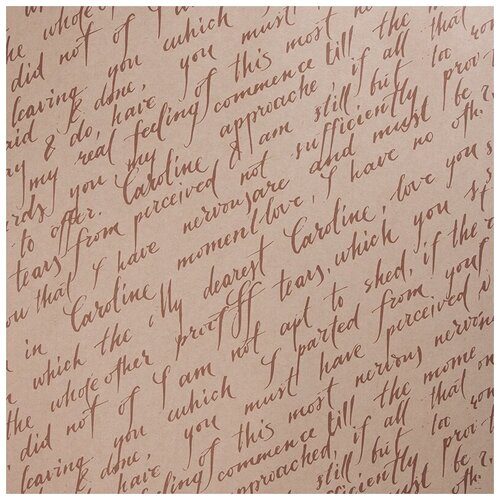 the whole of I am not
did not of I which the
leaving you must have
said & done, you this most nervous
say & do, have of this most ne that
my real feeling commence till the
wards you my approache, if all too won
to offer. Caroline & am still but
tears from perceived not sufficiently prov-
you that I have nervous are and must be
in Caroline moment love, I have no oth
in which the My dearest Caroline, love you s
the whole other proof of tears, which you s
did not of I am not apt to shed, if the
leaving you which I parted from you
& done, you must have perceived
have of this most nervous nervous
feeling commence till the mome
my approached, if all that
still but too won
sufficiently prov-